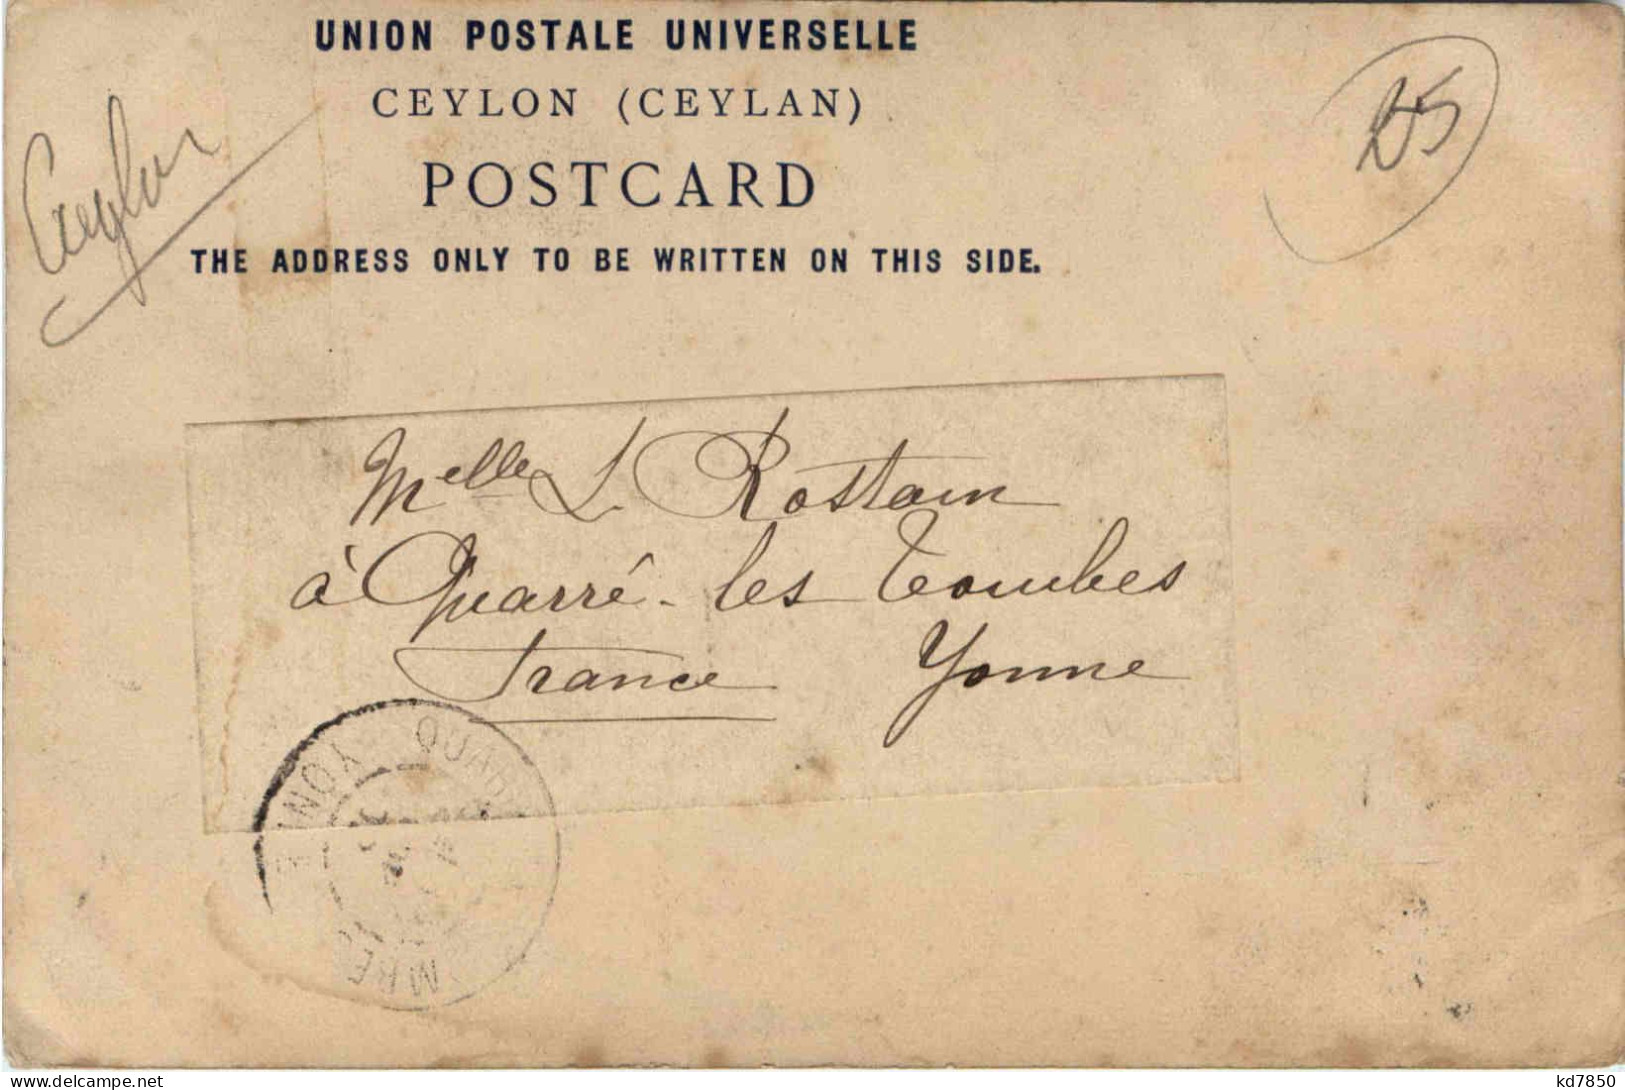 UNION POSTALE UNIVERSELLE
CEYLON (CEYLAN)
POSTCARD
THE ADDRESS ONLY TO BE WRITTEN ON THIS SIDE.
Ceylon
Melle L. Rostain
à Quarré-les Tombes
France Yonne
YONNE
QUARRE
MBES
www.delcampe.net
kd7850